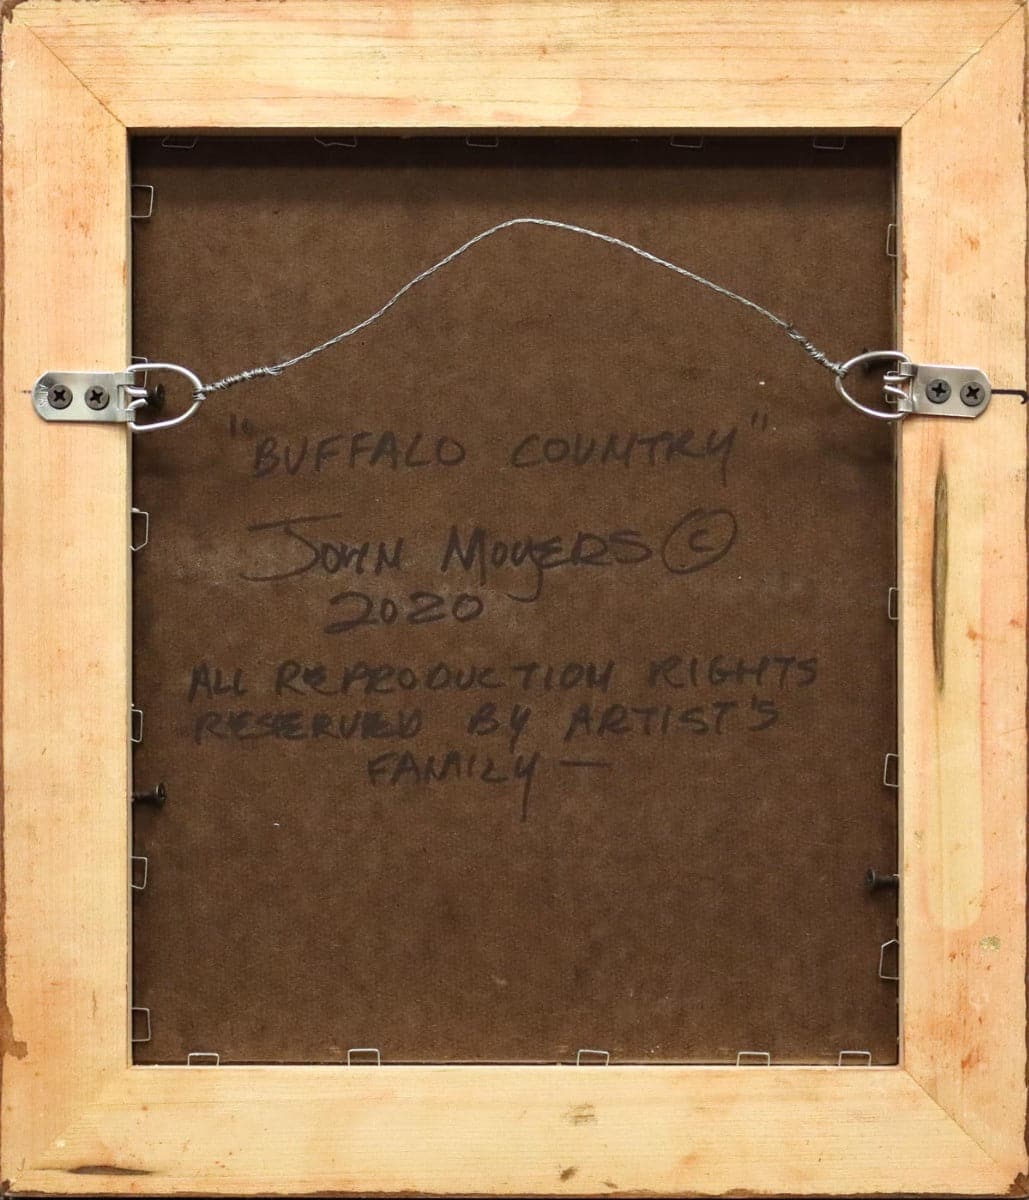 "BUFFALO COUNTRY"
JOHN MOYERS ©
2020
ALL REPRODUCTION RIGHTS
RESERVED BY ARTIST'S
FAMILY —